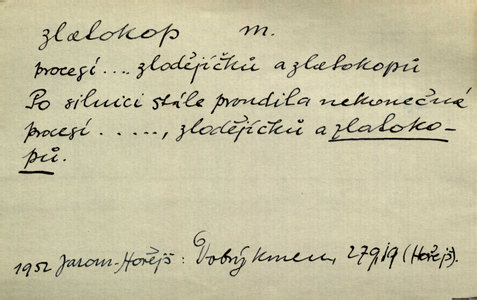 zlatokop m.
procesí.... zlodějíčků a zlatokopů
Po silnici stále proudila nekonečná
procesí ....., zlodějíčků a zlatoko-
pů.
1952 Jarom. Hořejš: Dobrý kmen, 279/9 (Hořejš).